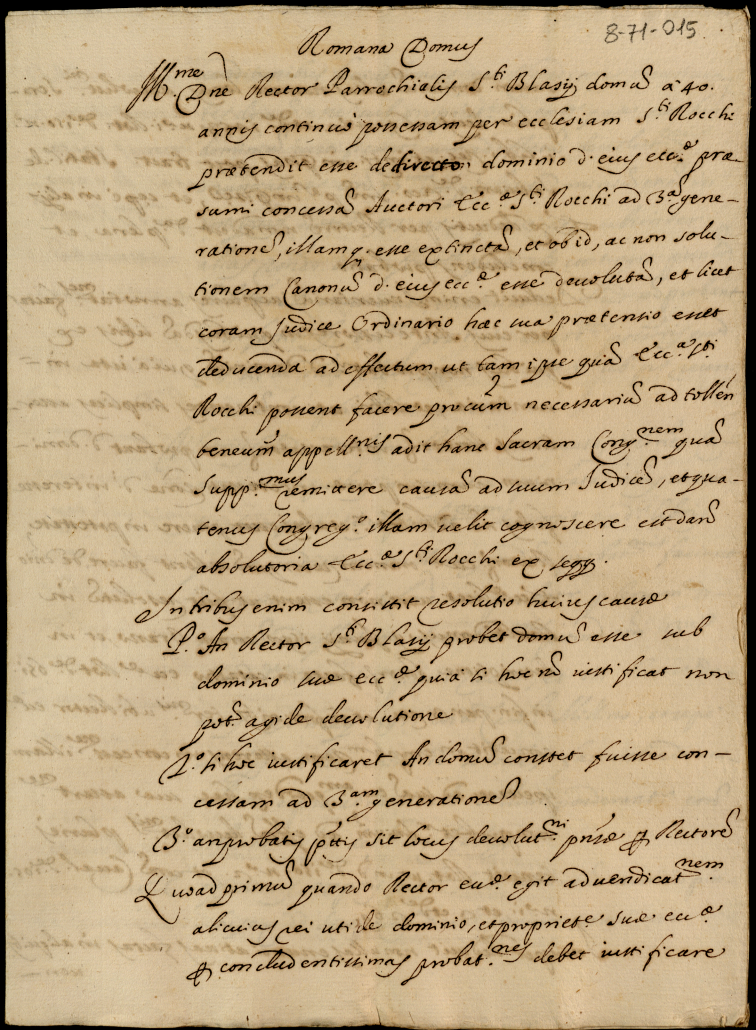 8-71-015
Romana Domus
Ill.me D.ne Rector Parrochialis S.ti Blasij domũ à 40.
annis continuò possessam per ecclesiam S.ti Rocchi
prætendit esse de directo dominio d. eius ecc.æ præ-
sumi concessã Auctori Ecc.æ S.ti Rocchi ad 3.ã gene-
rationẽ, illamq. esse extinctã, et ob id, ac non solu-
tionem Canonũ d. eius ecc.æ esse deuolutã, et licet
coram Judice Ordinario hæc sua prætensio esset
deducenda ad effectum ut tam ipse quã Ecc.a S.ti
Rocchi possent facere procum necessariũ ad tollẽn
beneum appell.nis adit hanc Sacram Cong.nem quã
supp.mus remittere causã ad suum Judicẽ, et qua-
tenus Congreg.o illam uelit cognoscere est danã
absolutoria Ecc.æ S.ti Rocchi ex seqq.
In tribus enim consistit resolutio huius causæ
P.o An Rector S.ti Blasij probet domũ esse sub
dominio suæ ecc.æ quia si hoc nõ iustificat non
pot. agi de deuolutione
2.o si hoc iustificaret An domũ constet fuisse con-
cessam ad 3.am generationẽ
3.o an probatis p̃ttis sit locus deuolut.ni p̃nsæ ꝑ Rectorẽ
Quoad primũ quando Rector eccæ egit ad uendicat.nem
alicuius rei uti de dominio, et propriet.e suæ eccæ
ꝑ concludentissimas probat.nes debet iustificare